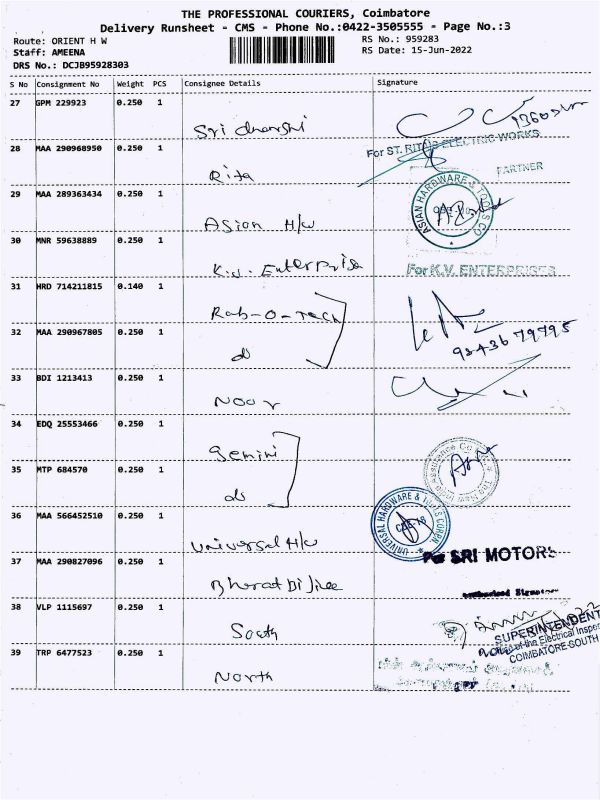 THE PROFESSIONAL COURIERS, Coimbatore
Delivery Runsheet - CMS - Phone No.:0422-3505555 - Page No.:3
Route: ORIENT H W
RS No.: 959283
Staff: AMEENA
RS Date: 15-Jun-2022
DRS No.: DCJB95928303
S No Consignment No Weight PCS Consignee Details Signature
27 GPM 229923 0.250 1
Sri dharshi
28 MAA 290968950 0.250 1
For ST. RITA'S ELECTRIC WORKS
Rita
PARTNER
29 MAA 289363434 0.250 1
ASIAN HARDWARE & TOOLS CO
Asian H/W
30 MNR 59638889 0.250 1
K.V. Enterprise
For K.V. ENTERPRISES
31 HRD 714211815 0.140 1
Rab-O-Tech
32 MAA 290967805 0.250 1
do
93436 79795
33 BDI 1213413 0.250 1
Noor
34 EDQ 25553466 0.250 1
Gemini
35 MTP 684570 0.250 1
do
36 MAA 566452510 0.250 1
UNIVERSAL HARDWARE & TOOLS CORPN.
CBE-18
Universal H/W
37 MAA 290827096 0.250 1
For SRI MOTORS
Bharat Bijlee
Authorised Signatory
38 VLP 1115697 0.250 1
South
SUPERINTENDENT
of the Electrical Inspe
COIMBATORE-SOUTH
39 TRP 6477523 0.250 1
North